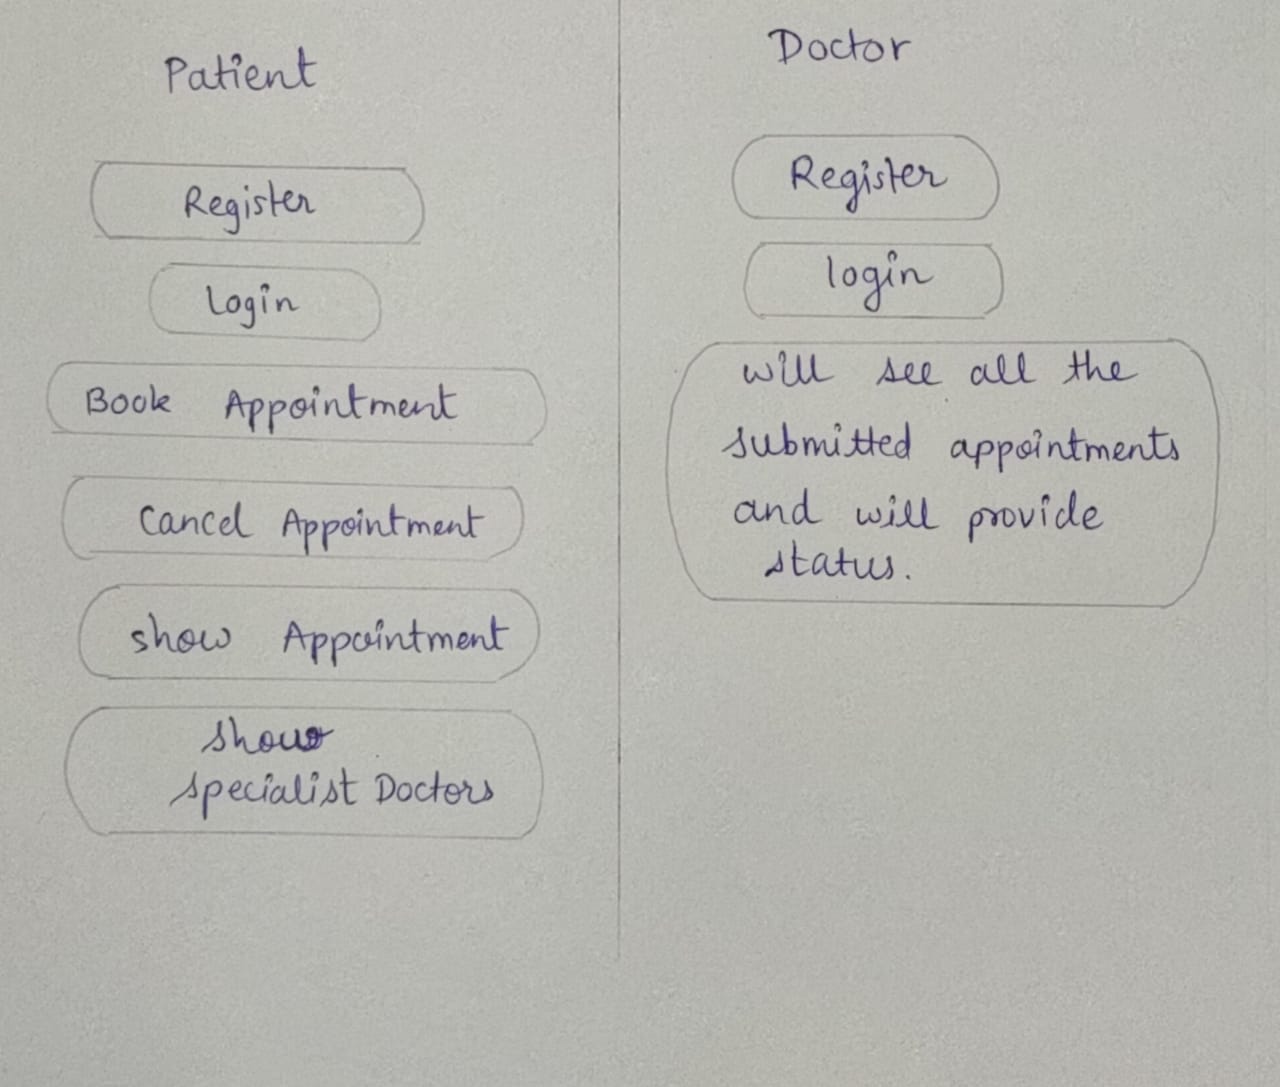 Patient
Register
Login
Book Appointment
Cancel Appointment
show Appointment
show
specialist Doctors
Doctor
Register
login
will see all the
submitted appointments
and will provide
status.